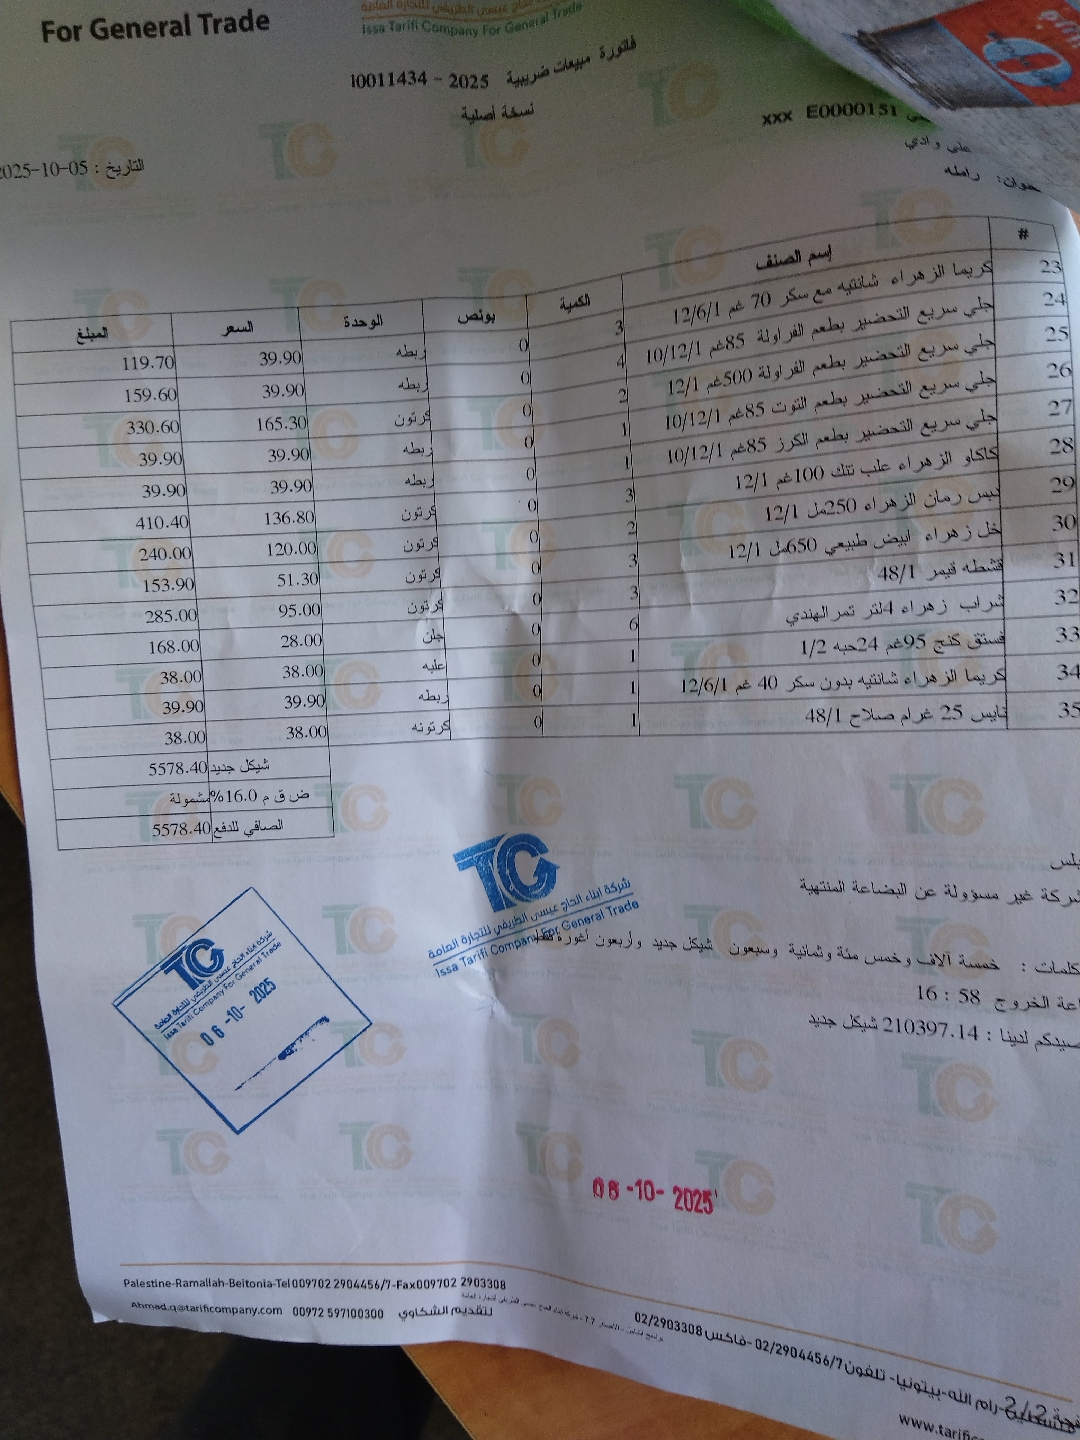 For General Trade
Issa Tarifi Company For General Trade
فاتورة مبيعات ضريبية 2025 - I0011434
نسخة أصلية
xxx E0000151
علي وادي
رامله
التاريخ : 2025-10-05
# إسم الصنف الكمية بونص الوحدة السعر المبلغ
23 كريما الزهراء شانتيه مع سكر 70 غم 12/6/1 3 0 ربطه 39.90 119.70
24 جلي سريع التحضير بطعم الفراولة 85غم 10/12/1 4 0 ربطه 39.90 159.60
25 جلي سريع التحضير بطعم الفراولة 500غم 12/1 2 0 كرتون 165.30 330.60
26 جلي سريع التحضير بطعم التوت 85غم 10/12/1 1 0 ربطه 39.90 39.90
27 جلي سريع التحضير بطعم الكرز 85غم 10/12/1 1 0 ربطه 39.90 39.90
28 كاكاو الزهراء علب تنك 100غم 12/1 3 0 كرتون 136.80 410.40
29 دبس رمان الزهراء 250مل 12/1 2 0 كرتون 120.00 240.00
30 خل زهراء ابيض طبيعي 650مل 12/1 3 0 كرتون 51.30 153.90
31 قشطه قيمر 48/1 3 0 كرتون 95.00 285.00
32 شراب زهراء 4لتر تمرالهندي 6 0 جلن 28.00 168.00
33 فستق كنج 95غم 24حبه 1/2 1 0 علبه 38.00 38.00
34 كريما الزهراء شانتيه بدون سكر 40 غم 12/6/1 1 0 ربطه 39.90 39.90
35 تايس 25 غرام صلاح 48/1 1 0 كرتونه 38.00 38.00
شيكل جديد 5578.40
ض ق م 16.0% مشمولة
الصافي للدفع 5578.40
TC
شركة ابناء الحاج عيسى الطريفي للتجارة العامة
Issa Tarifi Company For General Trade
الشركة غير مسؤولة عن البضاعة المنتهية
خمسة آلاف وخمس مئة وثمانية وسبعون شيكل جديد وأربعون أغورة فقط
الخروج 58 : 16
لدينا : 210397.14 شيكل جديد
TC
شركة ابناء الحاج عيسى الطريفي للتجارة العامة
Issa Tarifi Company For General Trade
06 -10- 2025
06 -10- 2025
Palestine-Ramallah-Beitonia-Tel009702 2904456/7-Fax009702 2903308
Ahmad.q@tarificompany.com 00972 597100300 لتقديم الشكاوي
رام الله-بيتونيا- تلفون 02/2904456/7 -فاكس 02/2903308
2/2